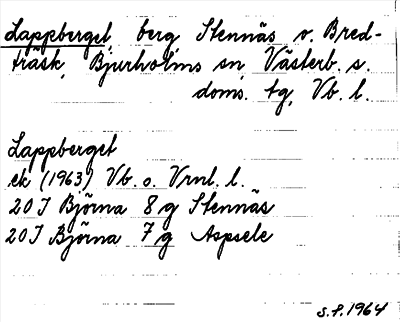 Lappberget, berg Stennäs v. Bred-
träsk, Bjurholms sn, Västerb. s.
doms. tg, Vb. l.
Lappberget
ek (1963) Vb. o. Vrnl. l.
20 J Björna 8 g Stennäs
20 J Björna 7 g Aspsele
S.P. 1964